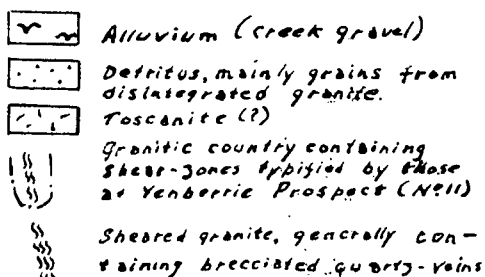 Alluvium (creek gravel)
Detritus, mainly grains from
disintegrated granite.
Toscanite (?)
Granitic country containing
shear-zones typified by those
at Yenberrie Prospect (No11)
Sheared granite, generally con-
taining brecciated quartz-veins